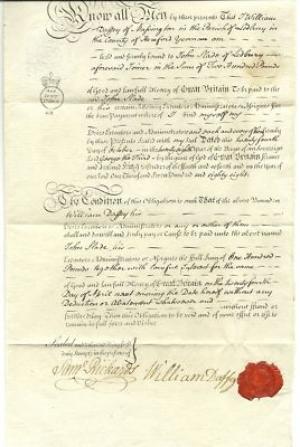 Know all Men by these presents That I William
in the Parish of Ledbury
in the County of Hereford Yeoman am
held and firmly bound to John Slade of Ledbury
aforesaid in the Sum of Two Hundred Pounds
of Good and Lawful Money of Great Britain To be paid to the
said John Slade
or his certain Attorney Executors Administrators or Assigns For
the true payment whereof I bind myself my
Heirs Executors and Administrators and each and every of them
by these Presents Sealed with my Seal Dated the twenty fourth
Day of October in the Year of the Reign of our Sovereign
Lord George the Third by the grace of God of Great Britain France
and Ireland King Defender of the Faith and so forth and in the Year
of our Lord One Thousand Seven Hundred and eighty eight
The Condition of this Obligation is such That if the above bound
William his
Heirs Executors or Administrators or any or either of them
shall and do well and truly pay or Cause to be paid unto the above named
John Slade his
Executors Administrators or Assigns the full Sum of One Hundred
Pounds together with lawful Interest for the same
of Good and Lawful Money of Great Britain on the twenty fourth
Day of April next ensuing the Date hereof without any
Deduction or Abatement whatsoever and without fraud or
further Delay Then this Obligation to be void and of none effect or else to
remain in full force and Virtue
Sealed and Delivered being first
duly Stamped in the presence of
Saml Richards William